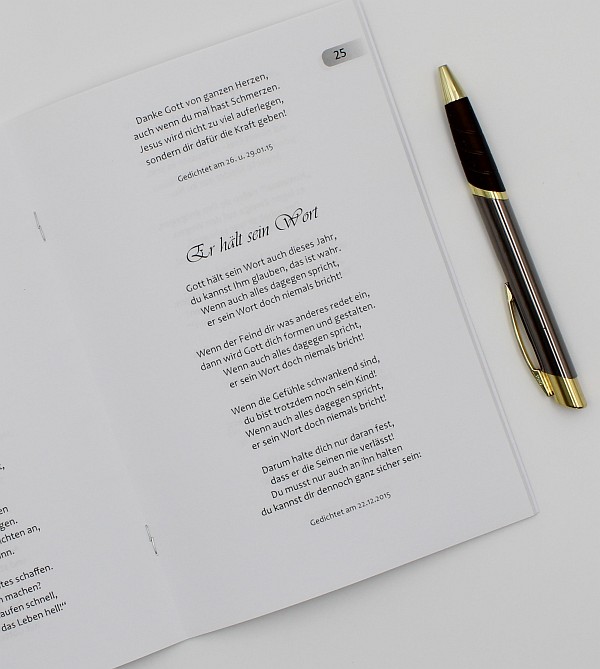 25
Danke Gott von ganzen Herzen,
auch wenn du mal hast Schmerzen.
Jesus wird nicht zu viel auferlegen,
sondern dir dafür die Kraft geben!
Gedichtet am 26. u. 29.01.15
Er hält sein Wort
Gott hält sein Wort auch dieses Jahr,
du kannst Ihm glauben, das ist wahr.
Wenn auch alles dagegen spricht,
er sein Wort doch niemals bricht!
Wenn der Feind dir was anderes redet ein,
dann wird Gott dich formen und gestalten.
Wenn auch alles dagegen spricht,
er sein Wort doch niemals bricht!
Wenn die Gefühle schwankend sind,
du bist trotzdem noch sein Kind!
Wenn auch alles dagegen spricht,
er sein Wort doch niemals bricht!
Darum halte dich nur daran fest,
dass er die Seinen nie verlässt!
Du musst nur auch an ihn halten
du kannst dir dennoch ganz sicher sein:
Gedichtet am 22.12.2015
en
gen.
ichten an,
nn.
tes schaffen.
n machen?
aufen schnell,
das Leben hell!“